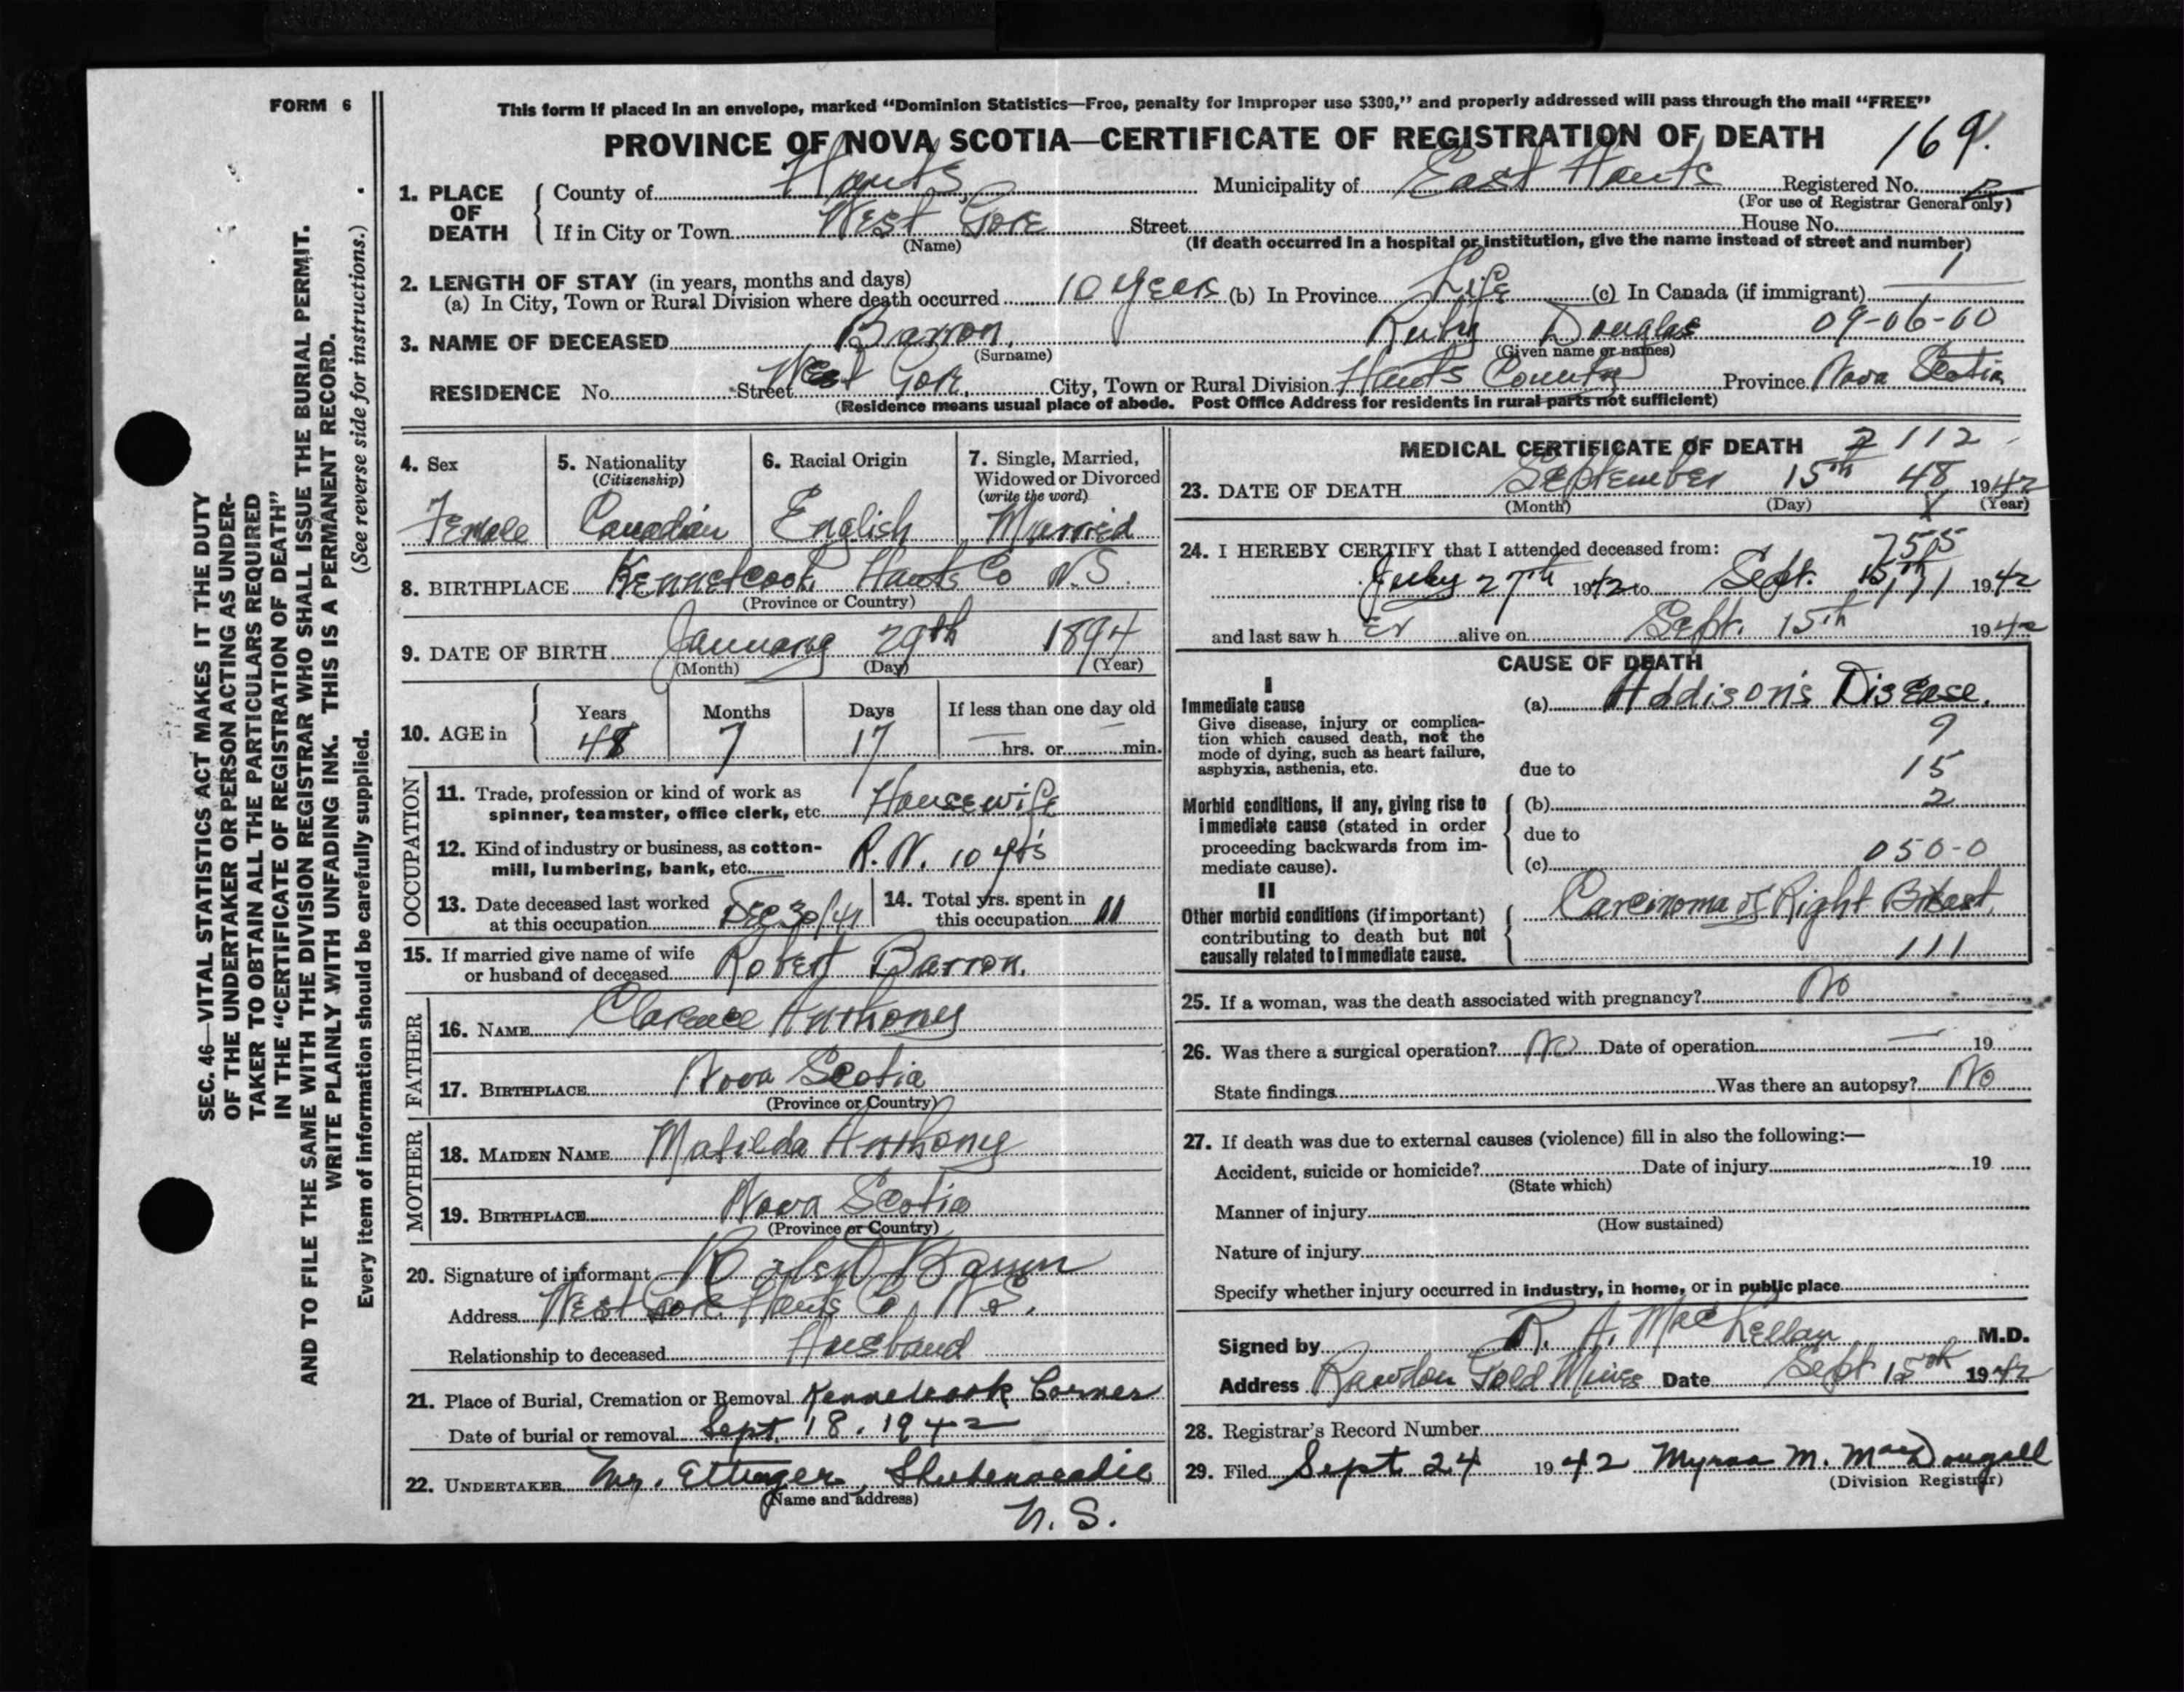 FORM 6
This form if placed in an envelope, marked “Dominion Statistics—Free, penalty for improper use $300,” and properly addressed will pass through the mail “FREE”
PROVINCE OF NOVA SCOTIA—CERTIFICATE OF REGISTRATION OF DEATH
169.
1. PLACE OF DEATH
County of Hants Municipality of East Hants Registered No.
(For use of Registrar General only)
If in City or Town West Gore Street House No.
(Name) (If death occurred in a hospital or institution, give the name instead of street and number)
1
2. LENGTH OF STAY (in years, months and days)
(a) In City, Town or Rural Division where death occurred 10 years (b) In Province Life (c) In Canada (if immigrant) —
3. NAME OF DECEASED Barron, Ruby Douglas 09-06-00
(Surname) (Given name or names)
RESIDENCE No. Street West Gore, City, Town or Rural Division Hants County Province Nova Scotia
(Residence means usual place of abode. Post Office Address for residents in rural parts not sufficient)
4. Sex 5. Nationality 6. Racial Origin 7. Single, Married,
(Citizenship) Widowed or Divorced
(write the word)
Female Canadian English Married
8. BIRTHPLACE Kennetcook Hants Co N.S.
(Province or Country)
9. DATE OF BIRTH January 29th 1894
(Month) (Day) (Year)
10. AGE in Years Months Days If less than one day old
48 7 17 — hrs. or — min.
OCCUPATION
11. Trade, profession or kind of work as
spinner, teamster, office clerk, etc. Housewife
12. Kind of industry or business, as cotton-
mill, lumbering, bank, etc. R.N. 10 yrs
13. Date deceased last worked
at this occupation Dec 30/41
14. Total yrs. spent in
this occupation 11
15. If married give name of wife
or husband of deceased Robert Barron.
FATHER
16. NAME Clarence Anthony
17. BIRTHPLACE Nova Scotia
(Province or Country)
MOTHER
18. MAIDEN NAME Matilda Anthony
19. BIRTHPLACE Nova Scotia
(Province or Country)
20. Signature of informant Robert Barron
Address West Gore Hants Co, N.S.
Relationship to deceased Husband
21. Place of Burial, Cremation or Removal Kennetcook Corner
Date of burial or removal Sept. 18. 1942
22. UNDERTAKER Mr. Ettinger, Shubenacadie
(Name and address)
N.S.
MEDICAL CERTIFICATE OF DEATH 2112
23. DATE OF DEATH September 15th 48 1942
(Month) (Day) (Year)
24. I HEREBY CERTIFY that I attended deceased from: 755
July 27th 1942 to Sept. 15th 1942
and last saw her alive on Sept. 15th 1942
CAUSE OF DEATH
I
Immediate cause
Give disease, injury or complica-
tion which caused death, not the
mode of dying, such as heart failure,
asphyxia, asthenia, etc.
(a) Addison's Disease.
9
due to 15
Morbid conditions, if any, giving rise to
immediate cause (stated in order
proceeding backwards from im-
mediate cause).
(b) 2
due to
(c) 050-0
II
Other morbid conditions (if important)
contributing to death but not
causally related to immediate cause.
Carcinoma of Right Breast.
111
25. If a woman, was the death associated with pregnancy? No
26. Was there a surgical operation? No Date of operation — 19
State findings Was there an autopsy? No
27. If death was due to external causes (violence) fill in also the following:—
Accident, suicide or homicide? Date of injury 19
(State which)
Manner of injury
(How sustained)
Nature of injury
Specify whether injury occurred in industry, in home, or in public place
Signed by R. A. MacLellan M.D.
Address Rawdon Gold Mines Date Sept 15th 1942
28. Registrar's Record Number
29. Filed Sept 24 1942 Myrna M. MacDougall
(Division Registrar)
SEC. 46—VITAL STATISTICS ACT MAKES IT THE DUTY
OF THE UNDERTAKER OR PERSON ACTING AS UNDER-
TAKER TO OBTAIN ALL THE PARTICULARS REQUIRED
IN THE “CERTIFICATE OF REGISTRATION OF DEATH”
AND TO FILE THE SAME WITH THE DIVISION REGISTRAR WHO SHALL ISSUE THE BURIAL PERMIT.
WRITE PLAINLY WITH UNFADING INK. THIS IS A PERMANENT RECORD.
Every item of information should be carefully supplied. (See reverse side for instructions.)